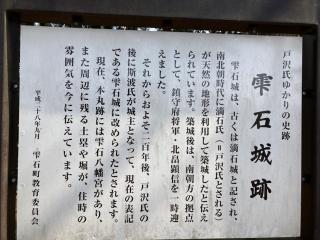 戸沢氏ゆかりの史跡
雫石城跡
雫石城は、古くは滴石城と記され、
南北朝時代に滴石氏(=戸沢氏とされる)
が天然の地形を利用して築城したと伝え
られています。築城後は、南朝方の拠点
として、鎮守府将軍・北畠顕信を一時迎
えました。
それからおよそ二百年後、戸沢氏の
後に斯波氏が城主となって、現在の表記
である雫石城に改められたとされます。
現在、本丸跡には雫石八幡宮があり、
また周辺に残る土塁や堀が、往時の
雰囲気を今に伝えています。
平成二十八年九月
雫石町教育委員会